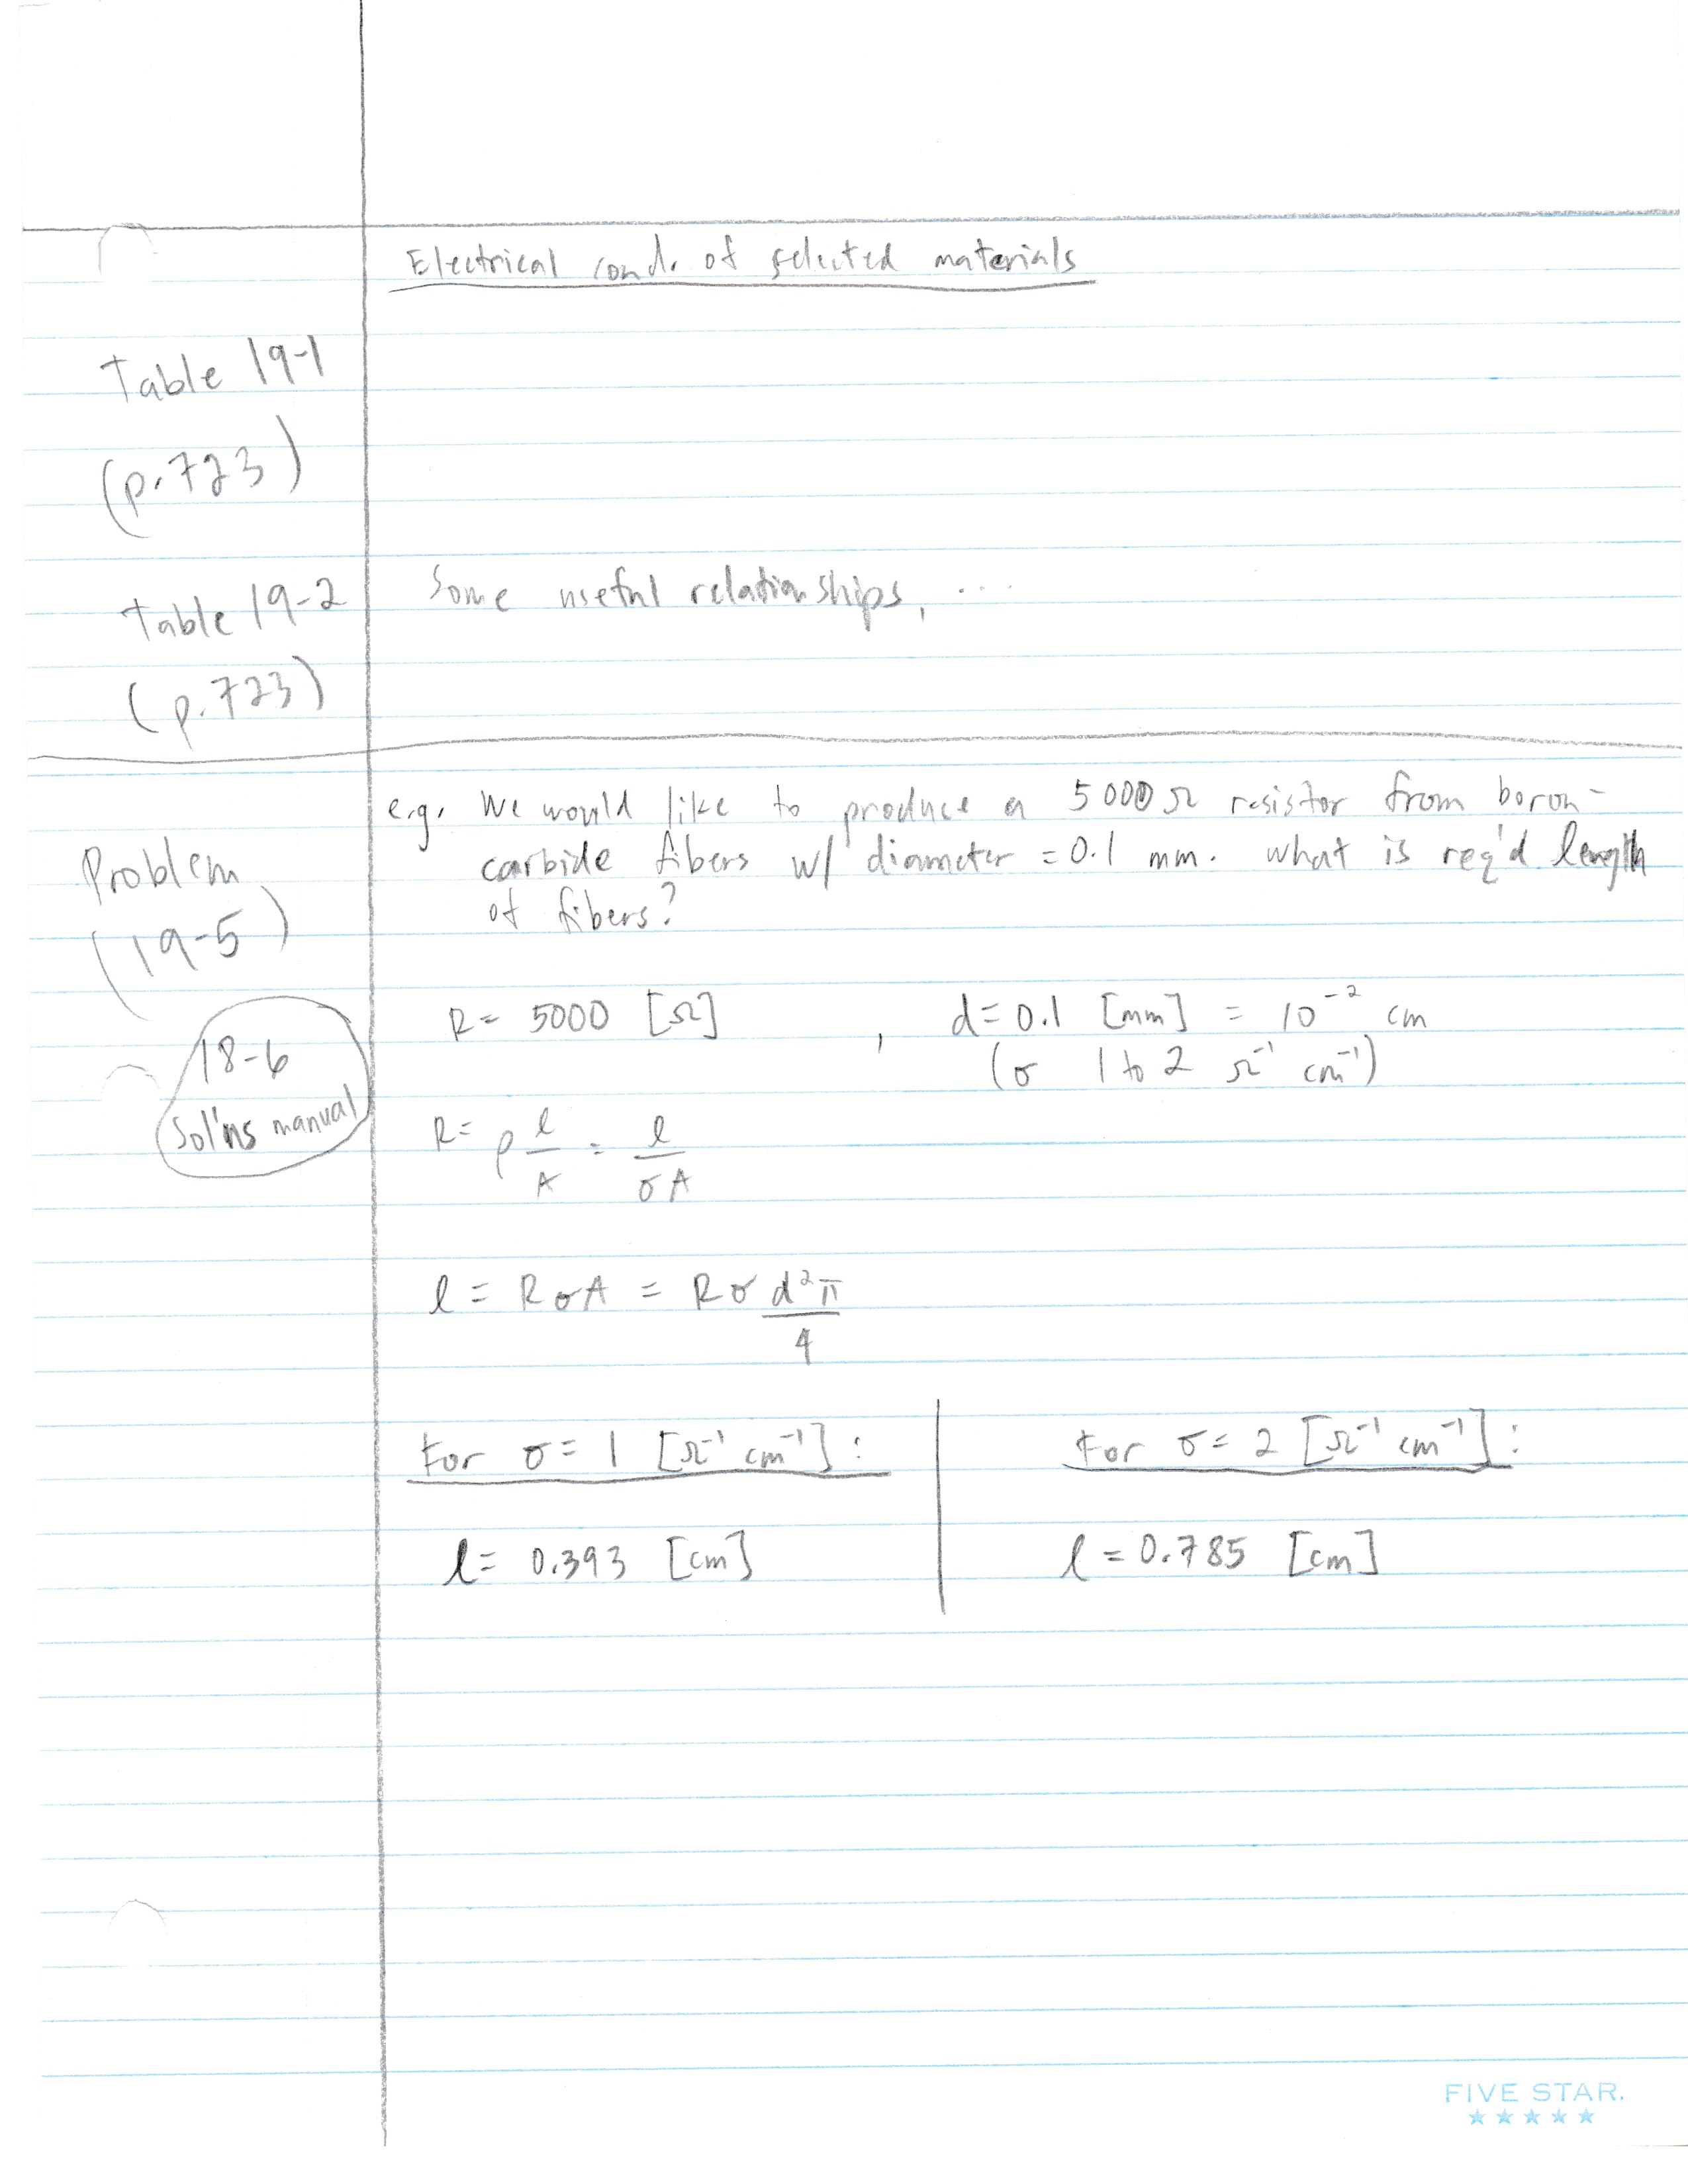 Electrical cond. of selected materials
Table 19-1
(p.723)
Table 19-2
(p.723)
Some useful relationships, ...
Problem
(19-5)
18-6
Sol'ns manual
e.g. We would like to produce a 5000 Ω resistor from boron-
carbide fibers w/ diameter = 0.1 mm. what is req'd length
of fibers?
R = 5000 [Ω] , d = 0.1 [mm] = 10⁻² cm
(σ 1 to 2 Ω⁻¹ cm⁻¹)
R = ρ l/A = l/σA
l = RσA = Rσ d²π/4
For σ = 1 [Ω⁻¹ cm⁻¹] :
l = 0.393 [cm]
For σ = 2 [Ω⁻¹ cm⁻¹] :
l = 0.785 [cm]
FIVE STAR.